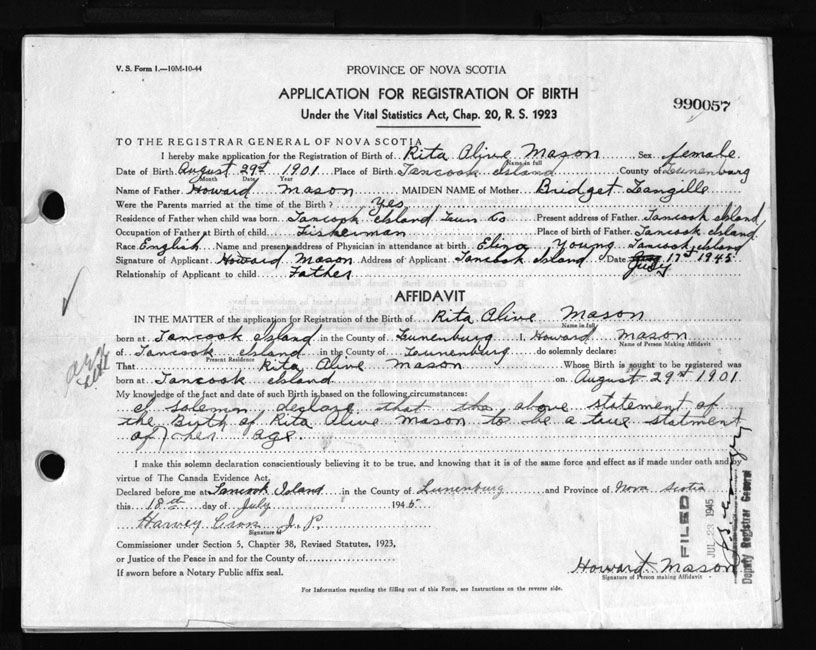 V. S. Form 1.—10M-10-44
PROVINCE OF NOVA SCOTIA
APPLICATION FOR REGISTRATION OF BIRTH
990057
Under the Vital Statistics Act, Chap. 20, R. S. 1923
TO THE REGISTRAR GENERAL OF NOVA SCOTIA
I hereby make application for the Registration of Birth of Rita Alive Mason Sex female
Name in full
Date of Birth August 29st 1901 Place of Birth Tancook Island County of Lunenburg
Month Date Year
Name of Father Howard Mason MAIDEN NAME of Mother Bridget Langille
Were the Parents married at the time of Birth? Yes
Residence of Father when child was born Tancook Island Lun Co Present address of Father Tancook Island
Occupation of Father at Birth of child Fisherman Place of birth of Father Tancook Island
Race English Name and present address of Physician in attendance at birth Eliza Young Tancook Island
Signature of Applicant Howard Mason Address of Applicant Tancook Island Date July 17st 1945
Relationship of Applicant to child Father
AFFIDAVIT
IN THE MATTER of the application for Registration of the Birth of Rita Alive Mason
Name in full
born at Tancook Island in the County of Lunenburg I, Howard Mason
Name of Person Making Affidavit
of Tancook Island in the County of Lunenburg do solemnly declare:
Present Residence
That Rita Alive Mason Whose Birth is sought to be registered was
born at Tancook Island on August 29st 1901
My knowledge of the fact and date of such Birth is based on the following circumstances:
I solemon declare that the above statement of
the Birth of Rita Alive Mason to be a true statment
of her age.
I make this solemn declaration conscientiously believing it to be true, and knowing that it is of the same force and effect as if made under oath and by
virtue of The Canada Evidence Act.
Declared before me at Tancook Island in the County of Lunenburg and Province of Nova Scotia
this 18th day of July 1945
Harvey J. P.
Signature of
Commissioner under Section 5, Chapter 38, Revised Statutes, 1923,
or Justice of the Peace in and for the County of
If sworn before a Notary Public affix seal.
Howard Mason
Signature of Person making Affidavit
FILED
JUL 23 1945
Deputy Registrar General
For Information regarding the filling out of this Form, see Instructions on the reverse side.